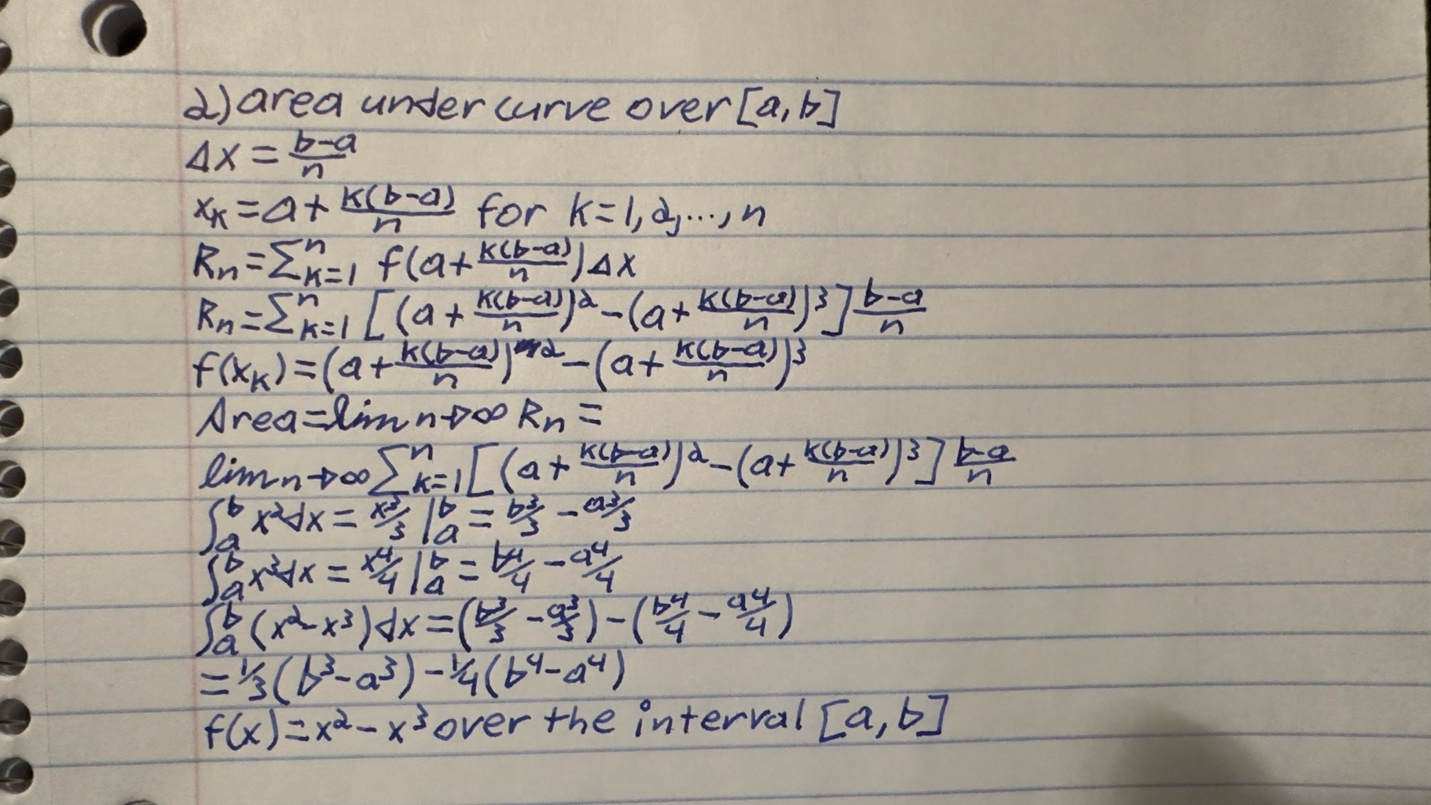 2) area under curve over [a, b]
Δx = (b-a)/n
xₖ = a + k(b-a)/n for k=1, 2, ..., n
Rₙ = ∑ⁿₖ₌₁ f(a + k(b-a)/n) Δx
Rₙ = ∑ⁿₖ₌₁ [(a + k(b-a)/n)² - (a + k(b-a)/n)³] (b-a)/n
f(xₖ) = (a + k(b-a)/n)² - (a + k(b-a)/n)³
Area = lim n→∞ Rₙ =
lim n→∞ ∑ⁿₖ₌₁ [(a + k(b-a)/n)² - (a + k(b-a)/n)³] (b-a)/n
∫ₐᵇ x² dx = x³/3 |ₐᵇ = b³/3 - a³/3
∫ₐᵇ x³ dx = x⁴/4 |ₐᵇ = b⁴/4 - a⁴/4
∫ₐᵇ (x² - x³) dx = (b³/3 - a³/3) - (b⁴/4 - a⁴/4)
= 1/3 (b³ - a³) - 1/4 (b⁴ - a⁴)
f(x) = x² - x³ over the interval [a, b]